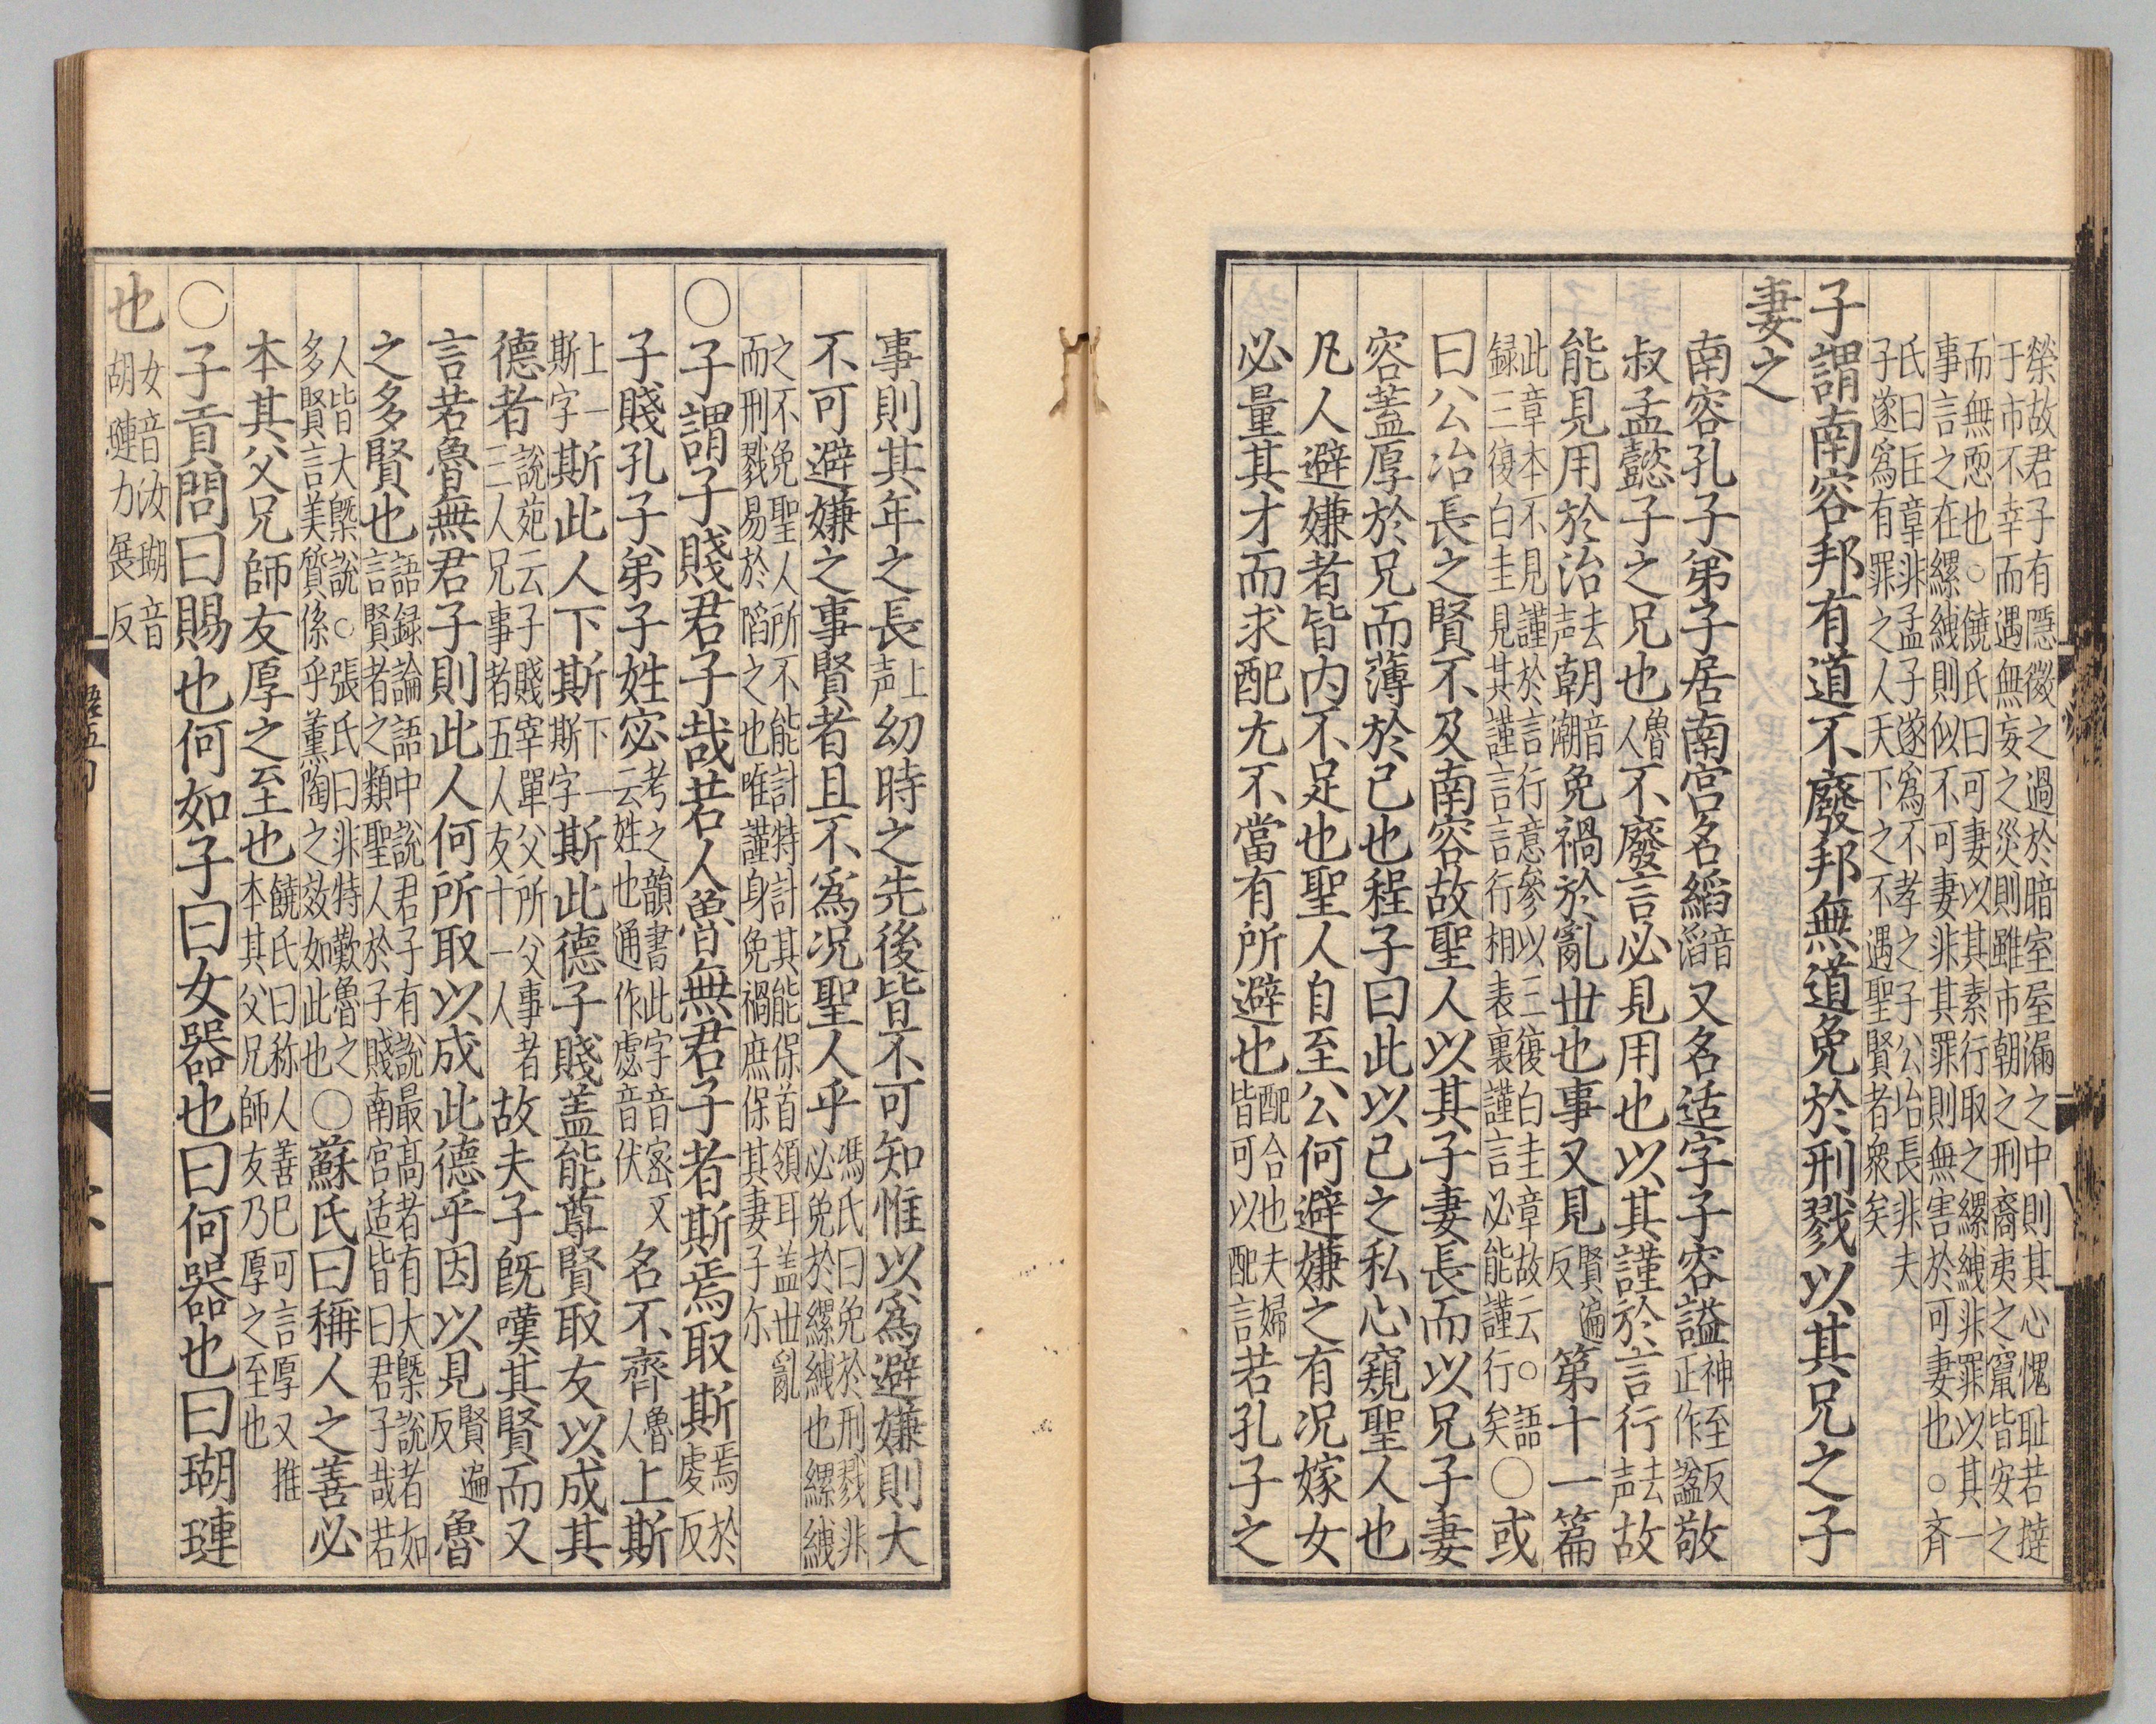 榮故君子有隱微之過於暗室屋漏之中則其心愧耻若撻
于市不幸而遇無妄之災則雖市朝之刑裔夷之竄皆安之
而無恧也○饒氏曰可妻以其素行取之縲絏非罪以其一
事言之在縲絏則似不可妻非其罪則無害於可妻也○斉
氏曰匡章非孟子遂爲不孝之子公冶長非夫
子遂爲有罪之人天下之不遇聖賢者衆矣
子謂南容邦有道不廢邦無道免於刑戮以其兄之子
妻之
南容孔子弟子居南宮名縚音滔又名适字子容謚神至反正作諡敬
叔孟懿子之兄也魯人不廢言必見用也以其謹於言行去声故
能見用於治去声朝音潮免禍於亂世也事又見賢遍反第十一篇
此章本不見謹於言行意參以三復白圭章故云○語録三復白圭見其謹言言行相表裏謹言必能謹行矣○或
曰公冶長之賢不及南容故聖人以其子妻長而以兄子妻
容蓋厚於兄而薄於己也程子曰此以己之私心窺聖人也
凡人避嫌者皆内不足也聖人自至公何避嫌之有况嫁女
必量其才而求配尤不當有所避也配合也夫婦皆可以配言若孔子之
事則其年之長上声幼時之先後皆不可知惟以爲避嫌則大
不可避嫌之事賢者且不爲况聖人乎馮氏曰免於刑戮非必免於縲絏也縲絏
之不免聖人所不能計特計其能保首領耳盖世亂
而刑戮易於陷之也唯謹身免禍庶保其妻子尓
○子謂子賤君子哉若人魯無君子者斯焉取斯焉於虔反
子賤孔子弟子姓宓考之韻書此字音密又云姓也通作虙音伏名不齊魯人上斯
上一斯字斯此人下斯下一斯字斯此德子賤盖能尊賢取友以成其
德者說苑云子賤宰單父所父事者三人兄事者五人友十一人故夫子旣嘆其賢而又
言若魯無君子則此人何所取以成此德乎因以見賢遍反魯
之多賢也語録論語中說君子有說最高者有大槩說者如言賢者之類聖人於子賤南宮适皆曰君子哉若
人皆大槩說○張氏曰非特歎魯之多賢言美質係乎薰陶之效如此也○蘇氏曰稱人之善必
本其父兄師友厚之至也饒氏曰称人善已可言厚又推本其父兄師友乃厚之至也
○子貢問曰賜也何如子曰女器也曰何器也曰瑚璉
也女音汝瑚音胡璉力展反